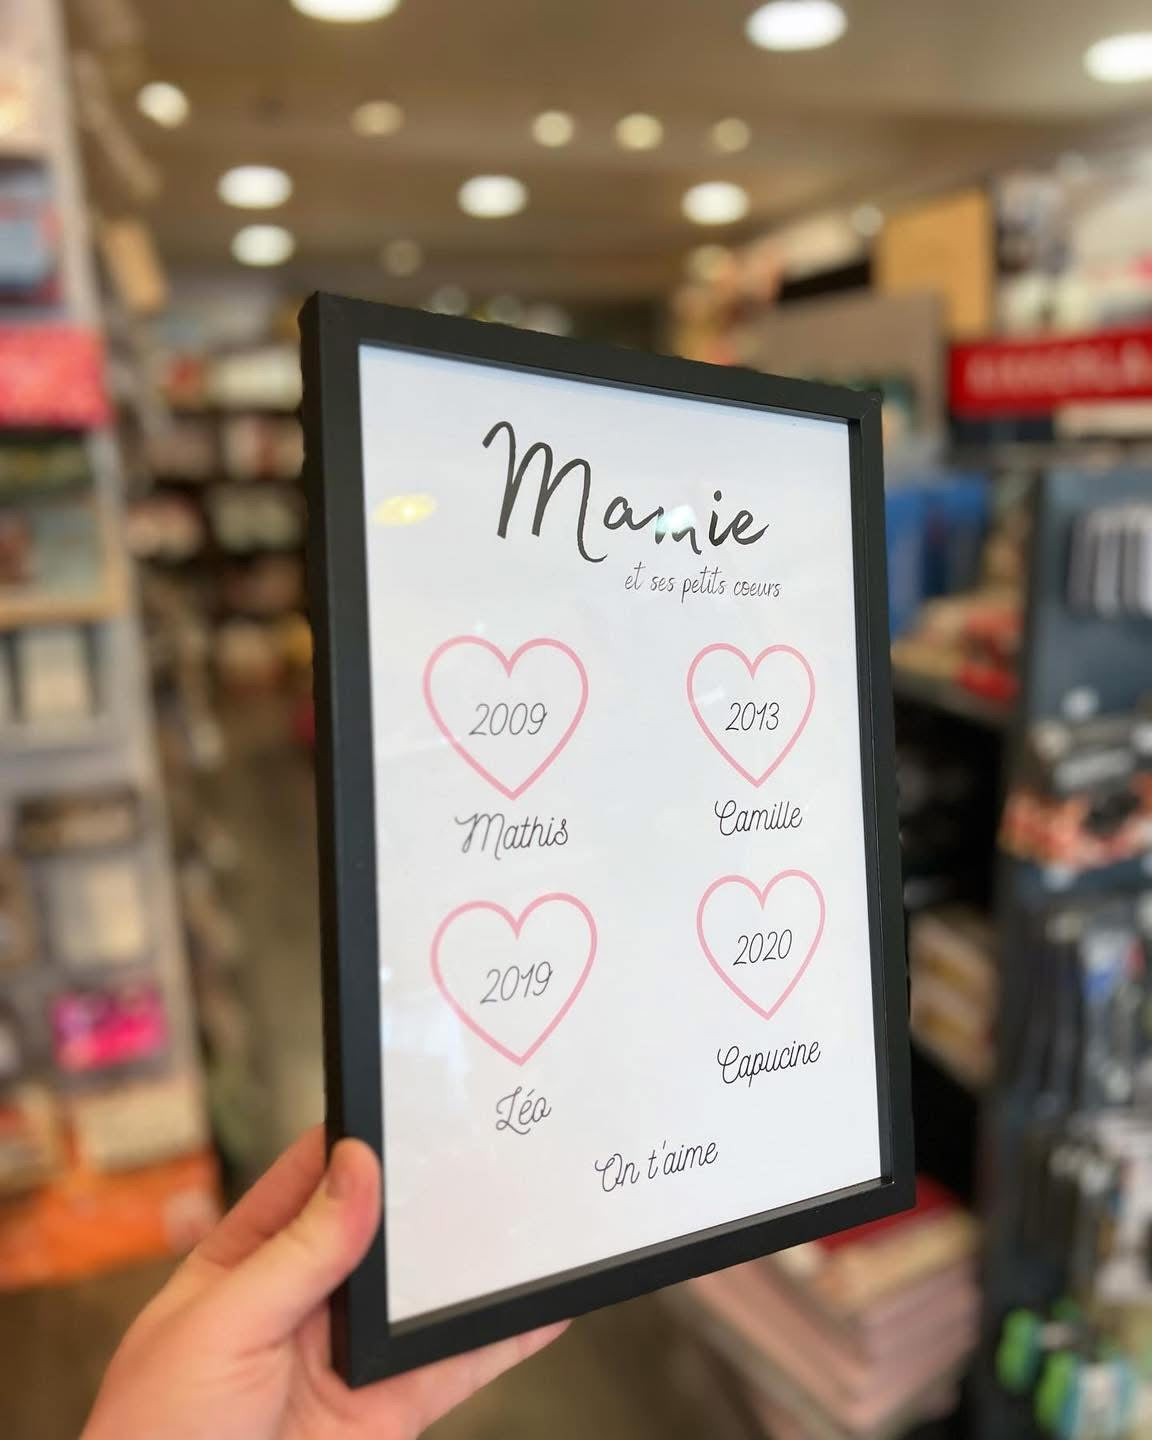 Mamie
et ses petits coeurs
2009
2013
Mathis
Camille
2019
2020
Léo
Capucine
On t'aime